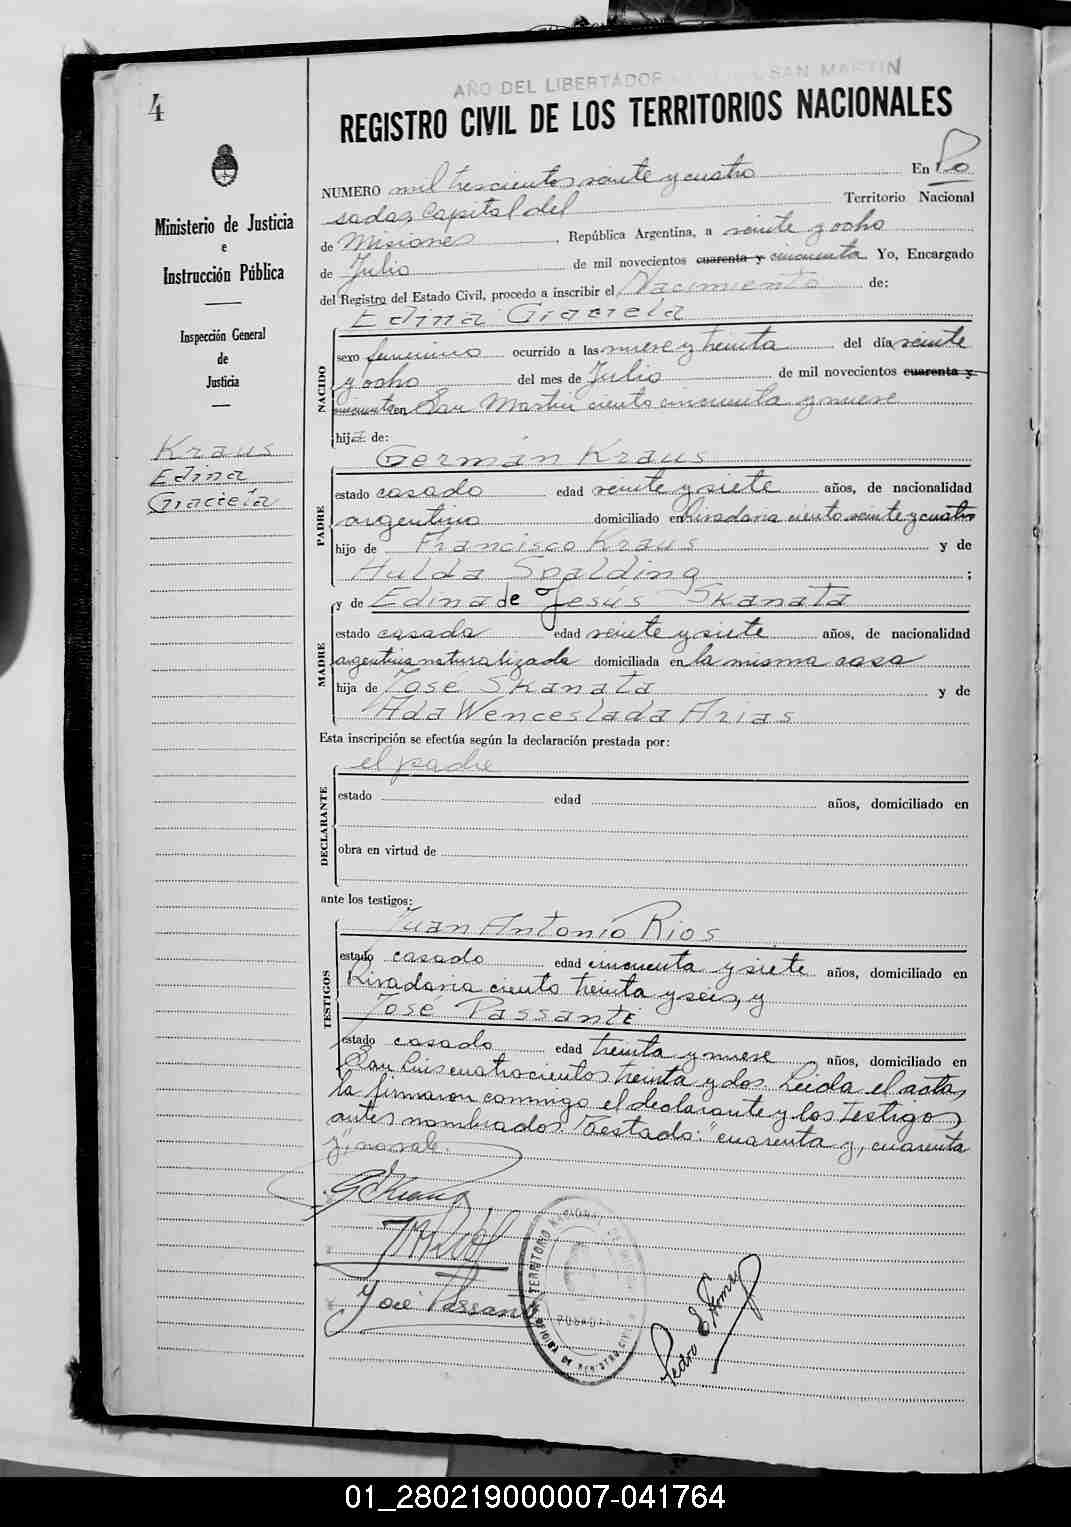 4
AÑO DEL LIBERTADOR SAN MARTIN
REGISTRO CIVIL DE LOS TERRITORIOS NACIONALES
Ministerio de Justicia
e
Instrucción Pública
Inspección General
de
Justicia
Kraus
Edina
Graciela
NUMERO mil trescientos veinte y cuatro En Po
sadas Capital del Territorio Nacional
de Misiones República Argentina, a veinte y ocho
de Julio de mil novecientos cuarenta y cincuenta Yo, Encargado
del Registro del Estado Civil, procedo a inscribir el Nacimiento de:
NACIDO
Edina Graciela
sexo femenino ocurrido a las nueve y treinta del día veinte
y ocho del mes de Julio de mil novecientos cuarenta y
cincuenta en San Martin ciento cincuenta y nueve
hija de:
PADRE
Germán Kraus
estado casado edad veinte y siete años, de nacionalidad
argentino domiciliado en Rivadavia ciento veinte y cuatro
hijo de Francisco Kraus y de
Hulda Spalding ;
MADRE
y de Edina de Jesús Skanata
estado casada edad veinte y siete años, de nacionalidad
argentina naturalizada domiciliada en la misma casa
hija de José Skanata y de
Ada Wenceslada Arias
Esta inscripción se efectúa según la declaración prestada por:
DECLARANTE
el padre
estado edad años, domiciliado en
obra en virtud de
ante los testigos:
TESTIGOS
Juan Antonio Rios
estado casado edad cincuenta y siete años, domiciliado en
Rivadavia ciento treinta y seis, y
José Passanti
estado casado edad treinta y nueve años, domiciliado en
San Luis cuatrocientos treinta y dos. Leida el acta,
la firmaron conmigo el declarante y los testigos
antes nombrados. Testado: "cuarenta y, cuarenta
y", no vale.
José Passanti
TERRITORIO NACIONAL DE
POSADAS
OFICINA DE REGISTRO CIVIL
Pedro E. Gomez
01_280219000007-041764